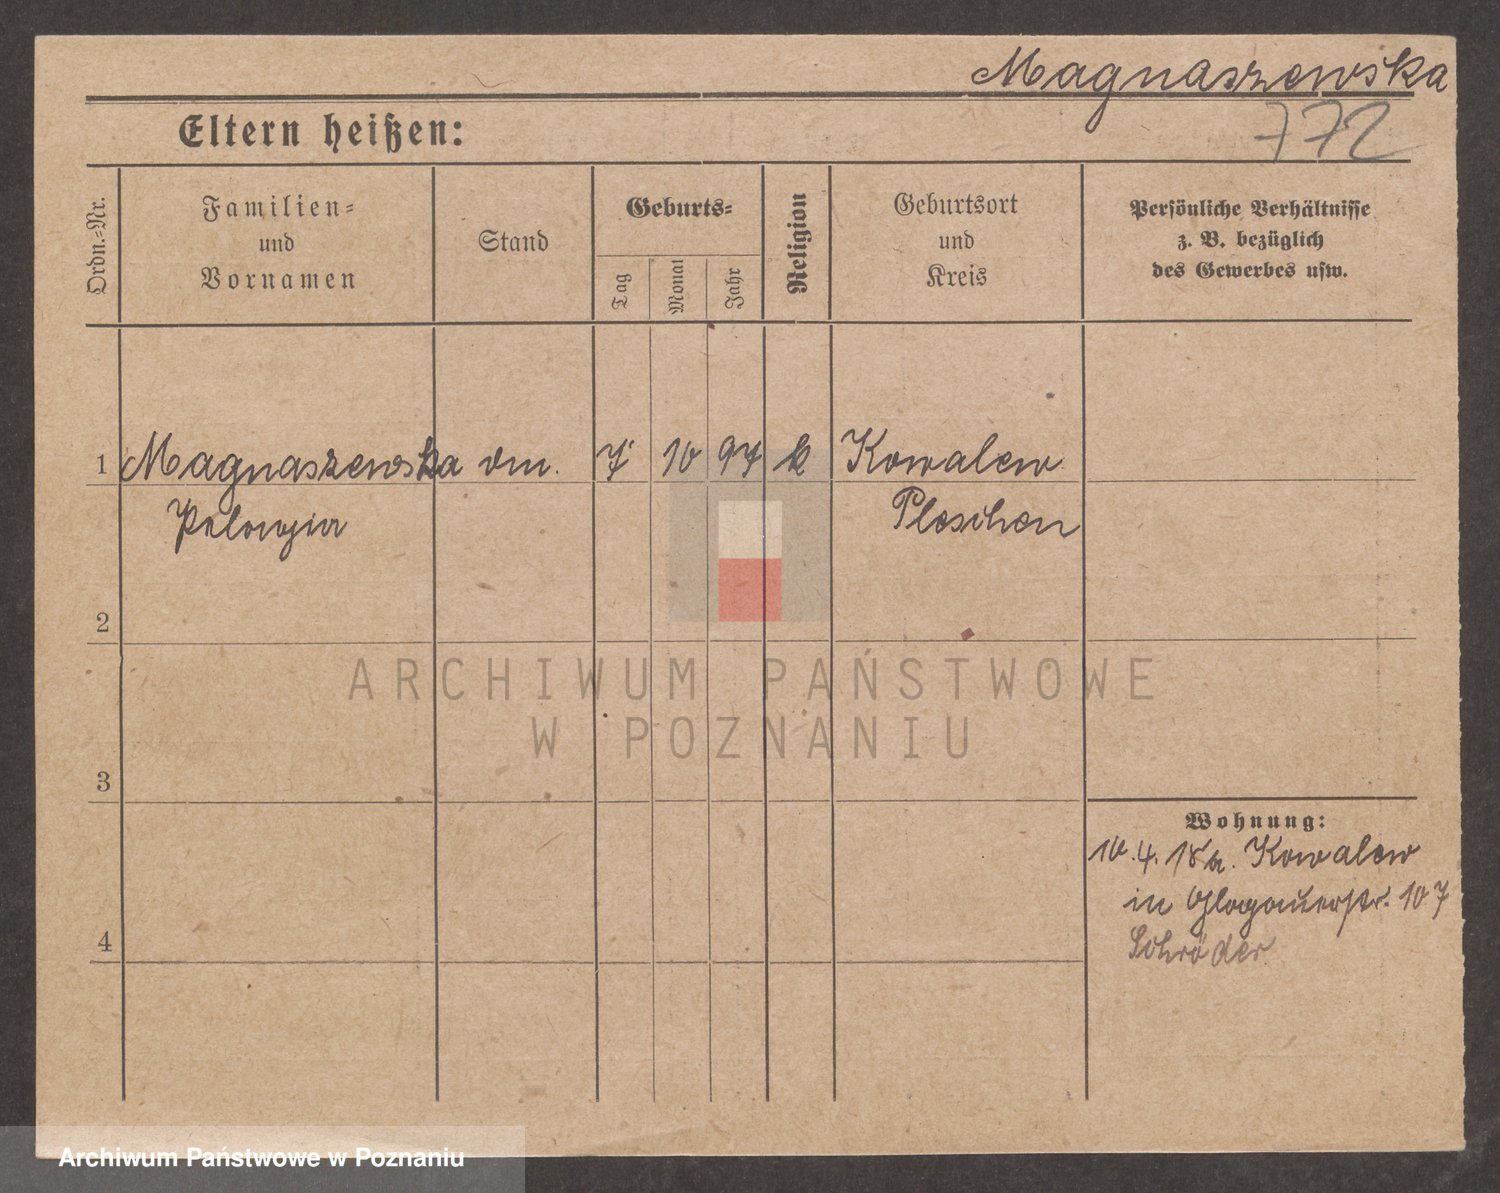 Magnaszewska
Eltern heißen:
772
Ordn.-Nr.
Familien-
und
Vornamen
Stand
Geburts-
Tag
Monat
Jahr
Religion
Geburtsort
und
Kreis
Persönliche Verhältnisse
z. B. bezüglich
des Gewerbes usw.
1 Magnaszewska 7 10 97 k Kowalew
Pelongia Pleschen
2
3
4
Wohnung:
10.4.18 Kowalew
in Glogauerstr. 107
Schröder
ARCHIWUM PAŃSTWOWE
W POZNANIU
Archiwum Państwowe w Poznaniu